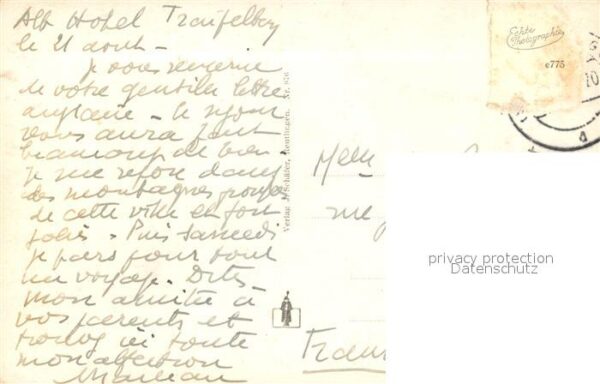 Alb Hotel Traifelberg
le 21 août -
je vous remercie
de votre gentille lettre
anglaise - le séjour
vous aura fait
beaucoup de bien -
je me repose dans
des montagnes
de cette ville et sont
jolies. Puis samedi
je pars pour tout
un voyage. Dites
mon amitié à
vos parents et
trouvez ici toute
mon affection
Verlag J. Schäfer, Reutlingen. Nr. 
Echte
Photographie
e775
Melle
privacy protection
Datenschutz